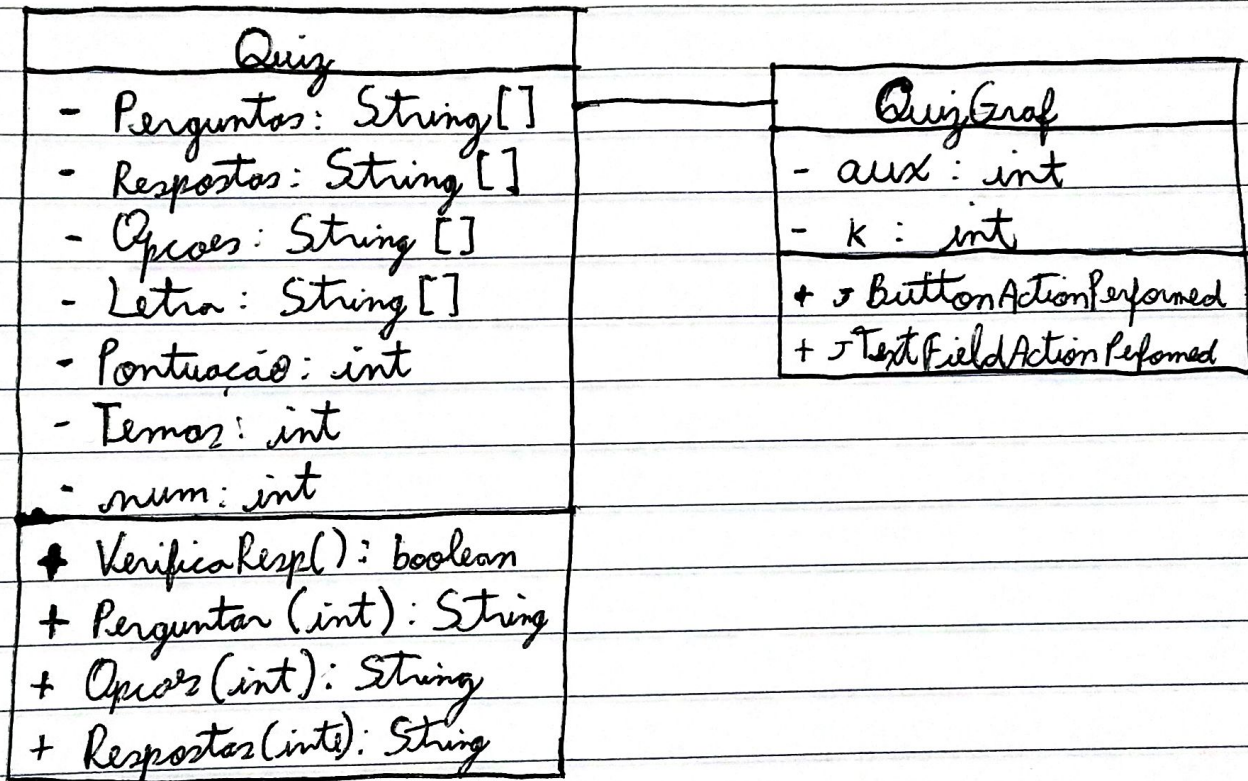 Quiz
- Perguntas: String[]
- Respostas: String[]
- Opcoes: String []
- Letra: String[]
- Pontuação: int
- Temas: int
- num: int
+ VerificaResp(): boolean
+ Perguntar (int): String
+ Opcoes (int): String
+ Respostas (inte): String
QuizGraf
- aux: int
- k: int
+ JButtonActionPerformed
+ JTextFieldActionPefomed